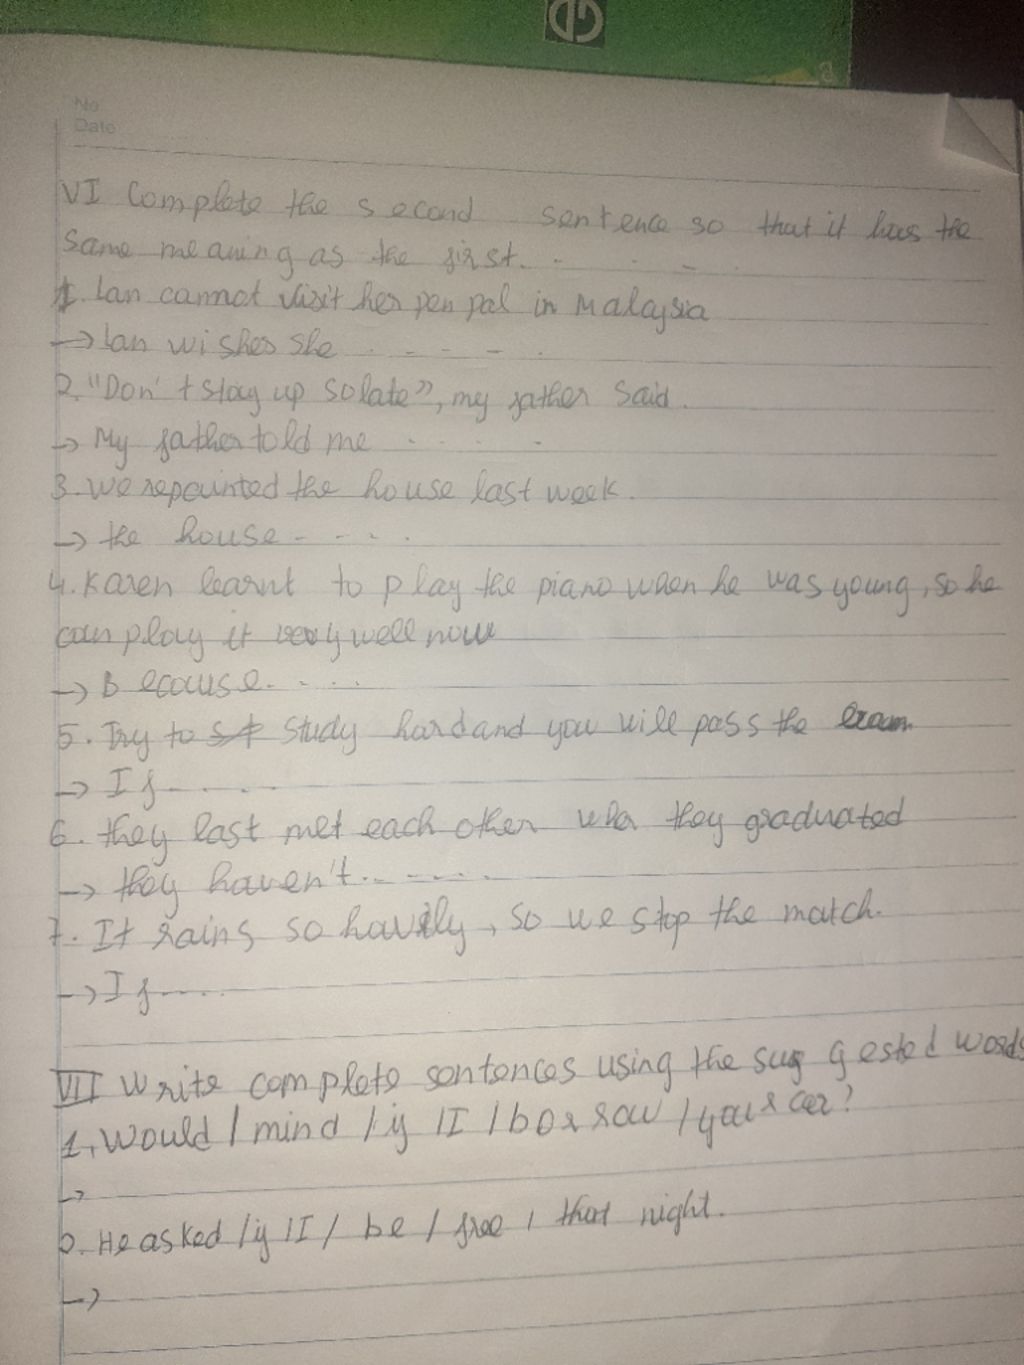 No
Date
VI Complete the second sentence so that it has the
same meaning as the first. . . . .
1. lan cannot visit her pen pal in Malaysia
→ lan wishes she . . . . .
2. "Don't stay up so late", my father said.
→ My father told me . . . .
3. we repainted the house last week.
→ the house . . . .
4. Karen learnt to play the piano when he was young, so he
can play it very well now
→ Because. . . .
5. Try to st study hard and you will pass the exam
→ If . . . . .
6. they last met each other when they graduated
→ they haven't . . . . .
7. It rains so havily, so we stop the match.
→ If . . . .
VII Write complete sentences using the suggested words
1. Would / mind / if / I / borrow / your car?
→
2. He asked / if / I / be / free / that night.
→